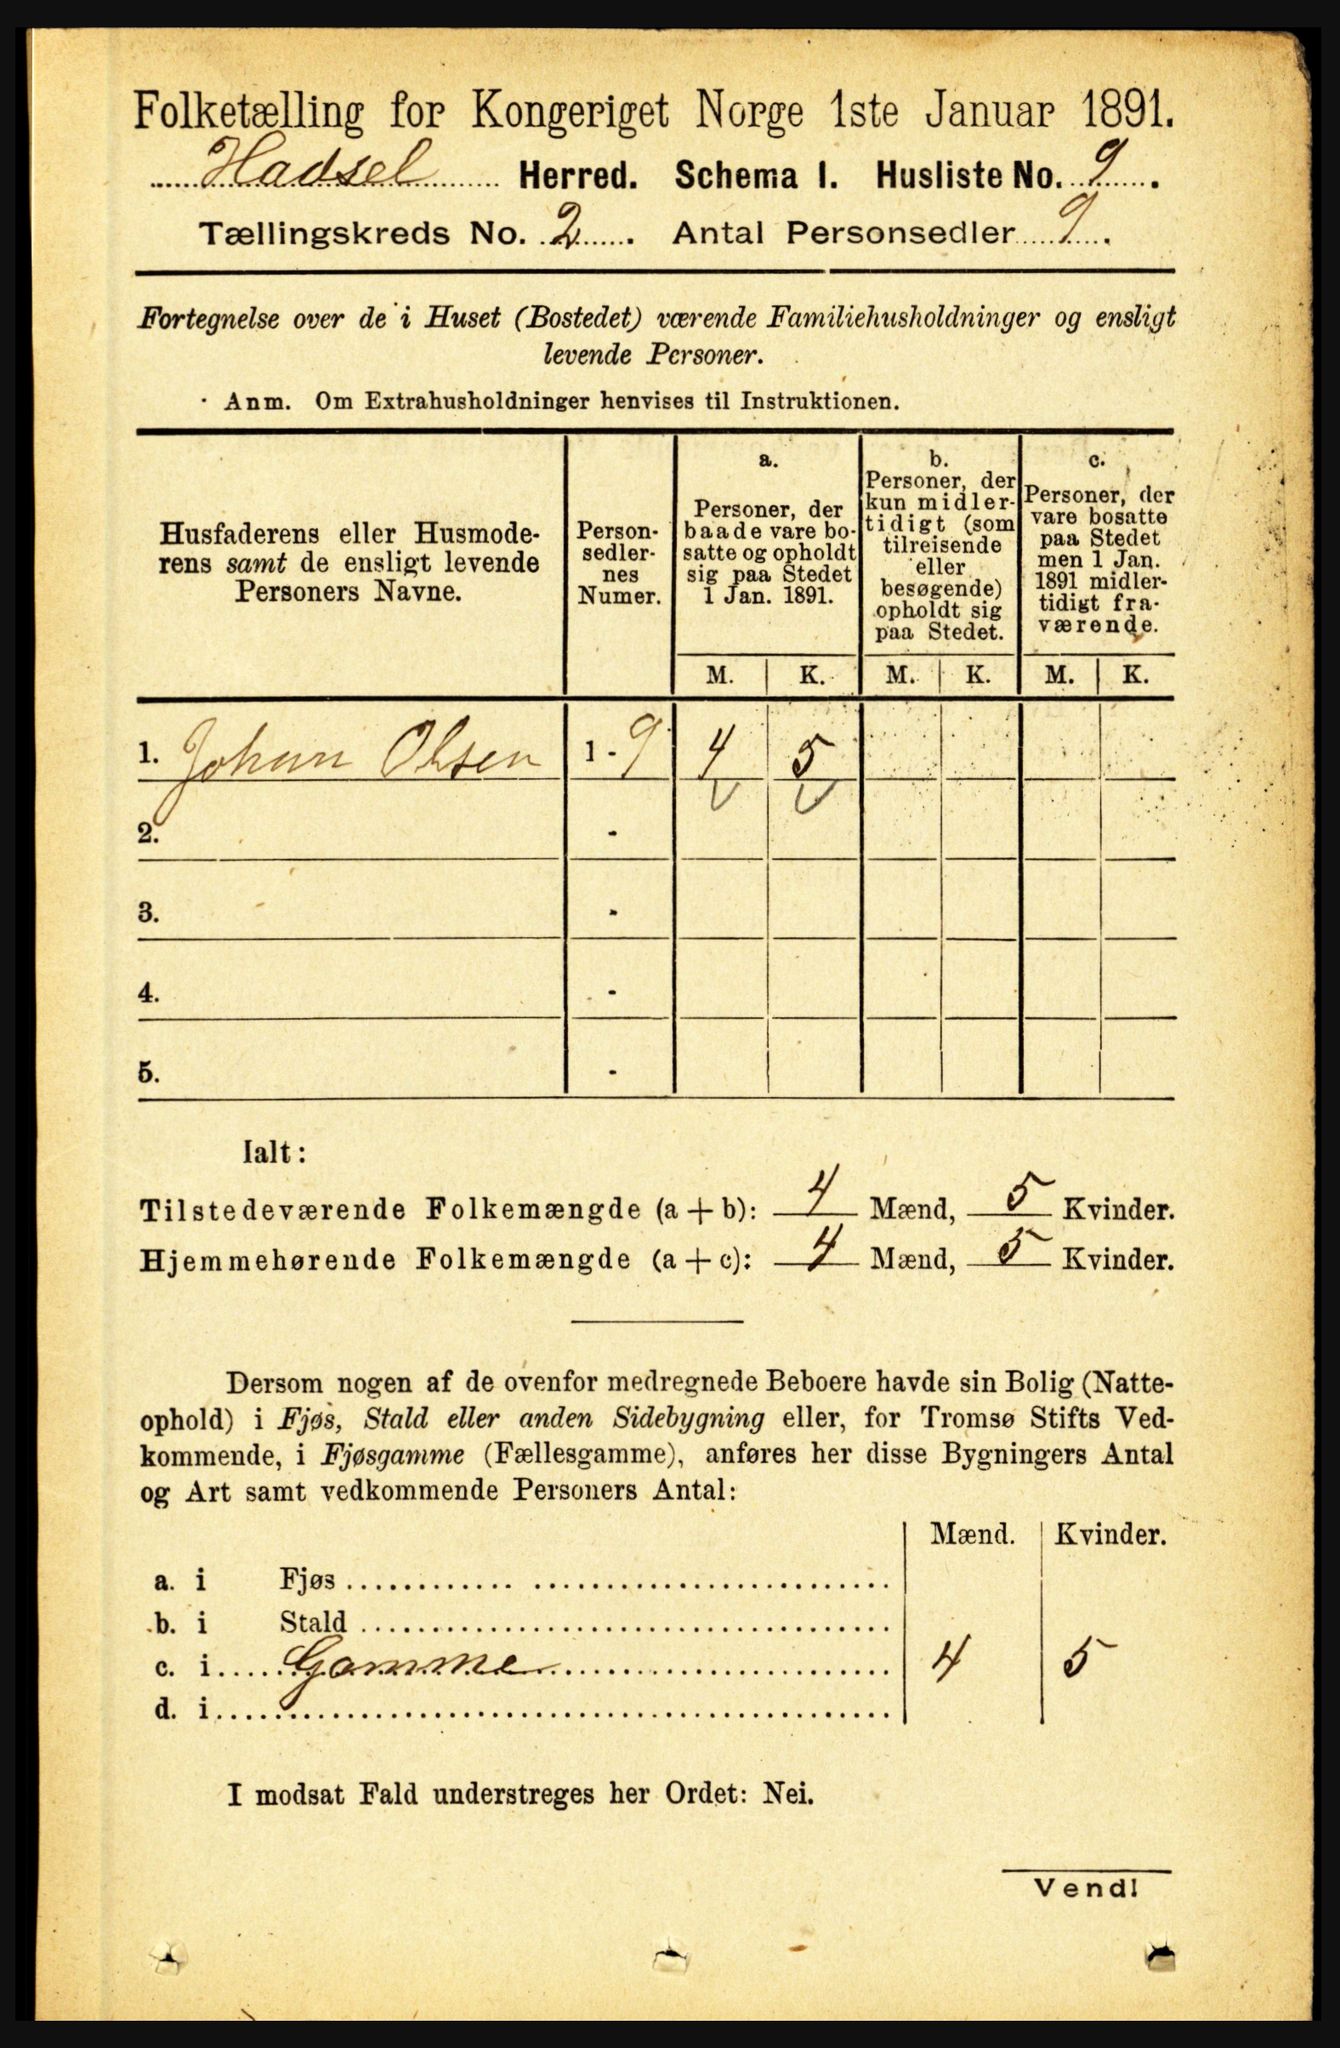 Folketælling for Kongeriget Norge 1ste Januar 1891.
Hadsel Herred. Schema I. Husliste No. 9.
Tællingskreds No. 2. Antal Personsedler 9.
Fortegnelse over de i Huset (Bostedet) værende Familiehusholdninger og ensligt
levende Personer.
Anm. Om Extrahusholdninger henvises til Instruktionen.
Husfaderens eller Husmode-
rens samt de ensligt levende
Personers Navne.
Person-
sedler-
nes
Numer.
a.
Personer, der
baade vare bo-
satte og opholdt
sig paa Stedet
1 Jan. 1891.
b.
Personer, der
kun midler-
tidigt (som
tilreisende
eller
besøgende)
opholdt sig
paa Stedet.
c.
Personer, der
vare bosatte
paa Stedet
men 1 Jan.
1891 midler-
tidigt fra-
værende.
M. K. M. K. M. K.
1. Johan Olsen 1 - 9 4 5
2. -
3. -
4. -
5. -
Ialt:
Tilstedeværende Folkemængde (a + b): 4 Mænd, 5 Kvinder.
Hjemmehørende Folkemængde (a + c): 4 Mænd, 5 Kvinder.
Dersom nogen af de ovenfor medregnede Beboere havde sin Bolig (Natte-
ophold) i Fjøs, Stald eller anden Sidebygning eller, for Tromsø Stifts Ved-
kommende, i Fjøsgamme (Fællesgamme), anføres her disse Bygningers Antal
og Art samt vedkommende Personers Antal:
Mænd. Kvinder.
a. i Fjøs
b. i Stald
c. i Gamme 4 5
d. i
I modsat Fald understreges her Ordet: Nei.
Vend!